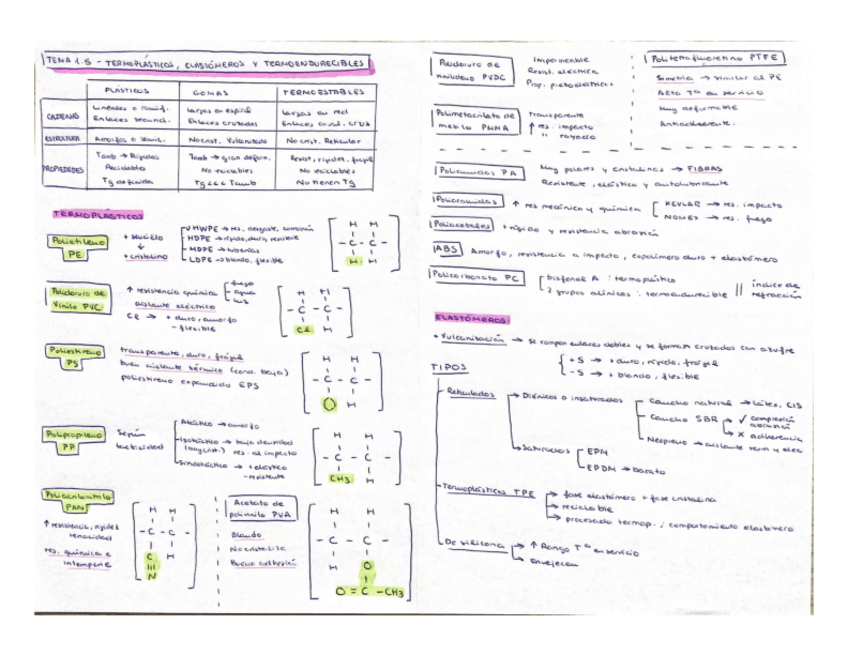 TEMA 1.5 - TERMOPLÁSTICOS, ELASTÓMEROS Y TERMOENDURECIBLES
PLÁSTICOS GOMAS TERMOESTABLES
CADENAS Lineales o ramif. Enlaces secund. Largas en espiral Enlaces cruzados Largas en red Enlaces coval. cruz
ESTRUCTURA Amorfa o semic. No crist. Vulcanizado No crist. Reticular
PROPIEDADES Tamb → Rígidos Reciclables Tg definida Tamb → gran deform. No reciclables Tg <<< Tamb Resist, rígidos, frágil No reciclables No tienen Tg
TERMOPLÁSTICOS
Polietileno PE
+ sencillo
+ cristalino
UHWPE → res. desgaste, corrosión
HDPE → rígido, duro, resistente
MDPE → tuberías
LDPE → blando, flexible
H H
- C - C -
H H
Policloruro de Vinilo PVC
↑ resistencia química
fuego
agua
luz
aislante eléctrico
Cl → + duro, amorfo
- flexible
H H
- C - C -
Cl H
Poliestireno PS
transparente, duro, frágil
buen aislante térmico (cond. baja)
poliestireno expandido EPS
H H
- C - C -
H
Polipropileno PP
Según tacticidad
Atáctico → amorfo
Isotáctico → baja densidad
res. al impacto
Sindiotáctico → + elástico
- resistente
H H
- C - C -
CH3 H
Poliacrilonitrilo PAN
↑ resistencia, rigidez
tenacidad
res. química e
intemperie
H H
- C - C -
C H
N
Acetato de
polivinilo PVA
Blando
No cristaliza
Buena adhesión
H H
- C - C -
O H
O = C - CH3
Policloruro de
vinilideno PVDC
Impermeable
Resist. eléctrica
Prop. piezoeléctricas
Polimetacrilato de
metilo PMMA
Transparente
↑ res. impacto
" rayado
Politetrafluoretileno PTFE
Simetría → similar al PE
Alta Tª en servicio
Muy deformable
Antiadherente.
Poliamidas PA
Muy polares y cristalinas → FIBRAS
Resistente, elástica y autolubricante
Poliaramidas
↑ res mecánica y química
KEVLAR → res. impacto
NOMEX → res. fuego
Poliacetales + rígido y resistencia abrasión
ABS Amorfo, resistencia a impacto, copolímero duro + elastómero
Policarbonato PC
bisfenol A : termoplástico
2 grupos alínicos : termoendurecible
índice de
refracción
ELASTÓMEROS
• Vulcanización → Se rompen enlaces dobles y se forman cruzados con azufre
+ S → + duro, rígido, frágil
- S → + blando, flexible
TIPOS
Reticulados
Diénicos o insaturados
Caucho natural → látex, CIS
Caucho SBR
✓ compresión
abrasión
✗ adherencia
Neopreno → aislante term y elec
Saturados
EPM
EPDM → barato
Termoplásticos TPE
fase elastómero + fase cristalina
reciclable
procesado termop. ; comportamiento elastómero
De silicona
↑ Rango Tª en servicio
envejecen